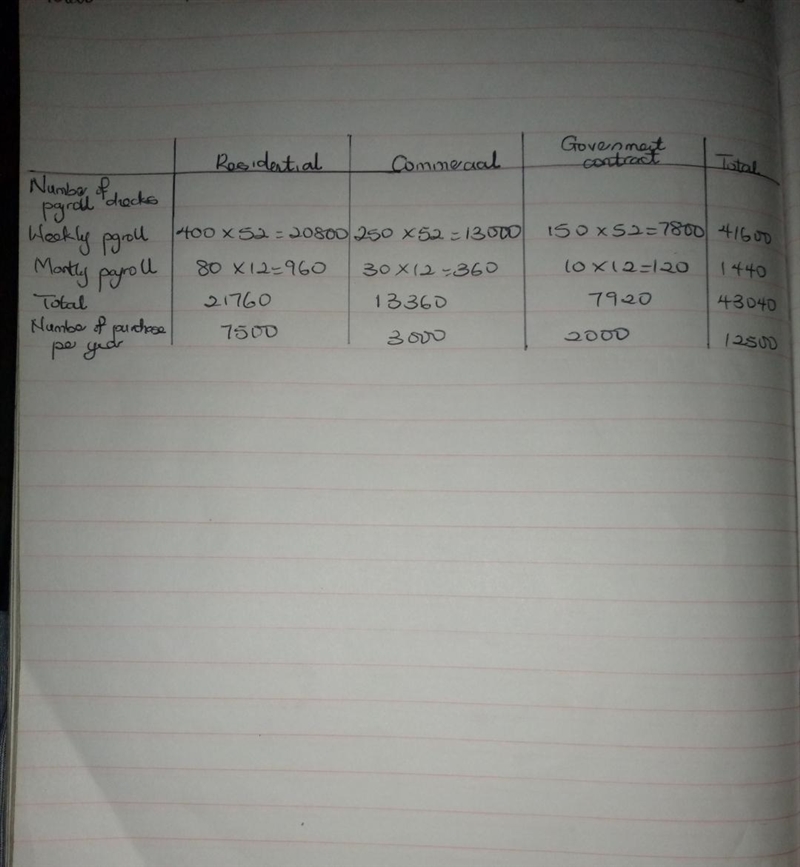 Residential Commercial Government contract Total
Number of payroll checks
Weekly pyroll 400 x 52 = 20800 250 x 52 = 13000 150 x 52 = 7800 41600
Montly payroll 80 x 12 = 960 30 x 12 = 360 10 x 12 = 120 1440
Total 21760 13360 7920 43040
Number of purchase per year 7500 3000 2000 12500